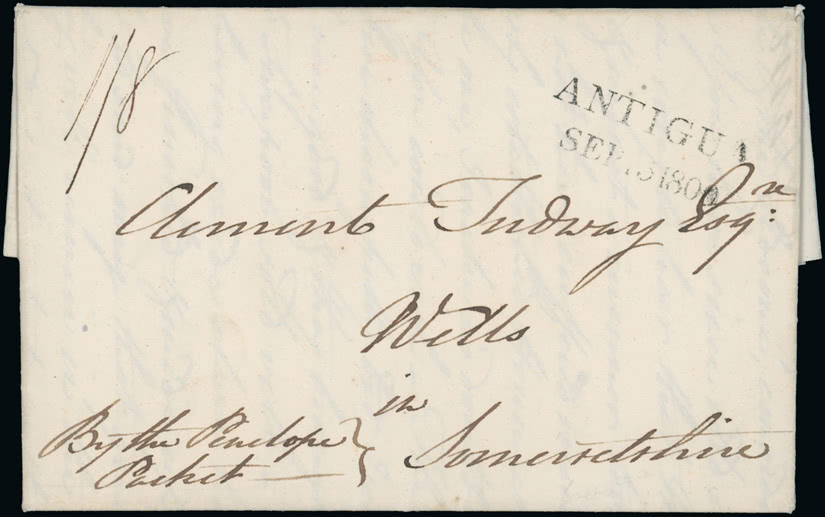 1/8
ANTIGUA
SEP. 5 180
Clement Tudway Esqr:
Wells
in
Somersetshire
By the Penelope
Packet